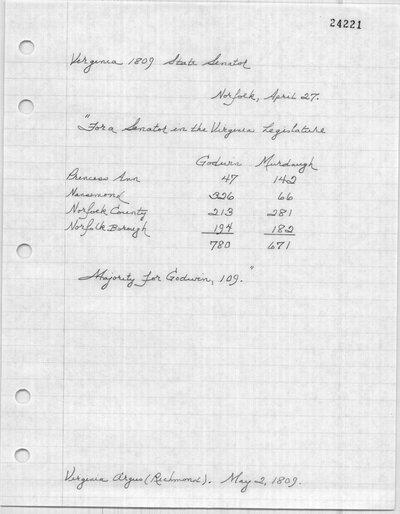 24221
Virginia 1809 State Senator
Norfolk, April 27.
"For a Senator in the Virginia Legislature
Godwin Murdaugh
Princess Ann 47 142
Nansemond 326 66
Norfolk County 213 281
Norfolk Borough 194 182
780 671
Majority for Godwin, 109."
Virginia Argus (Richmond). May 2, 1809.